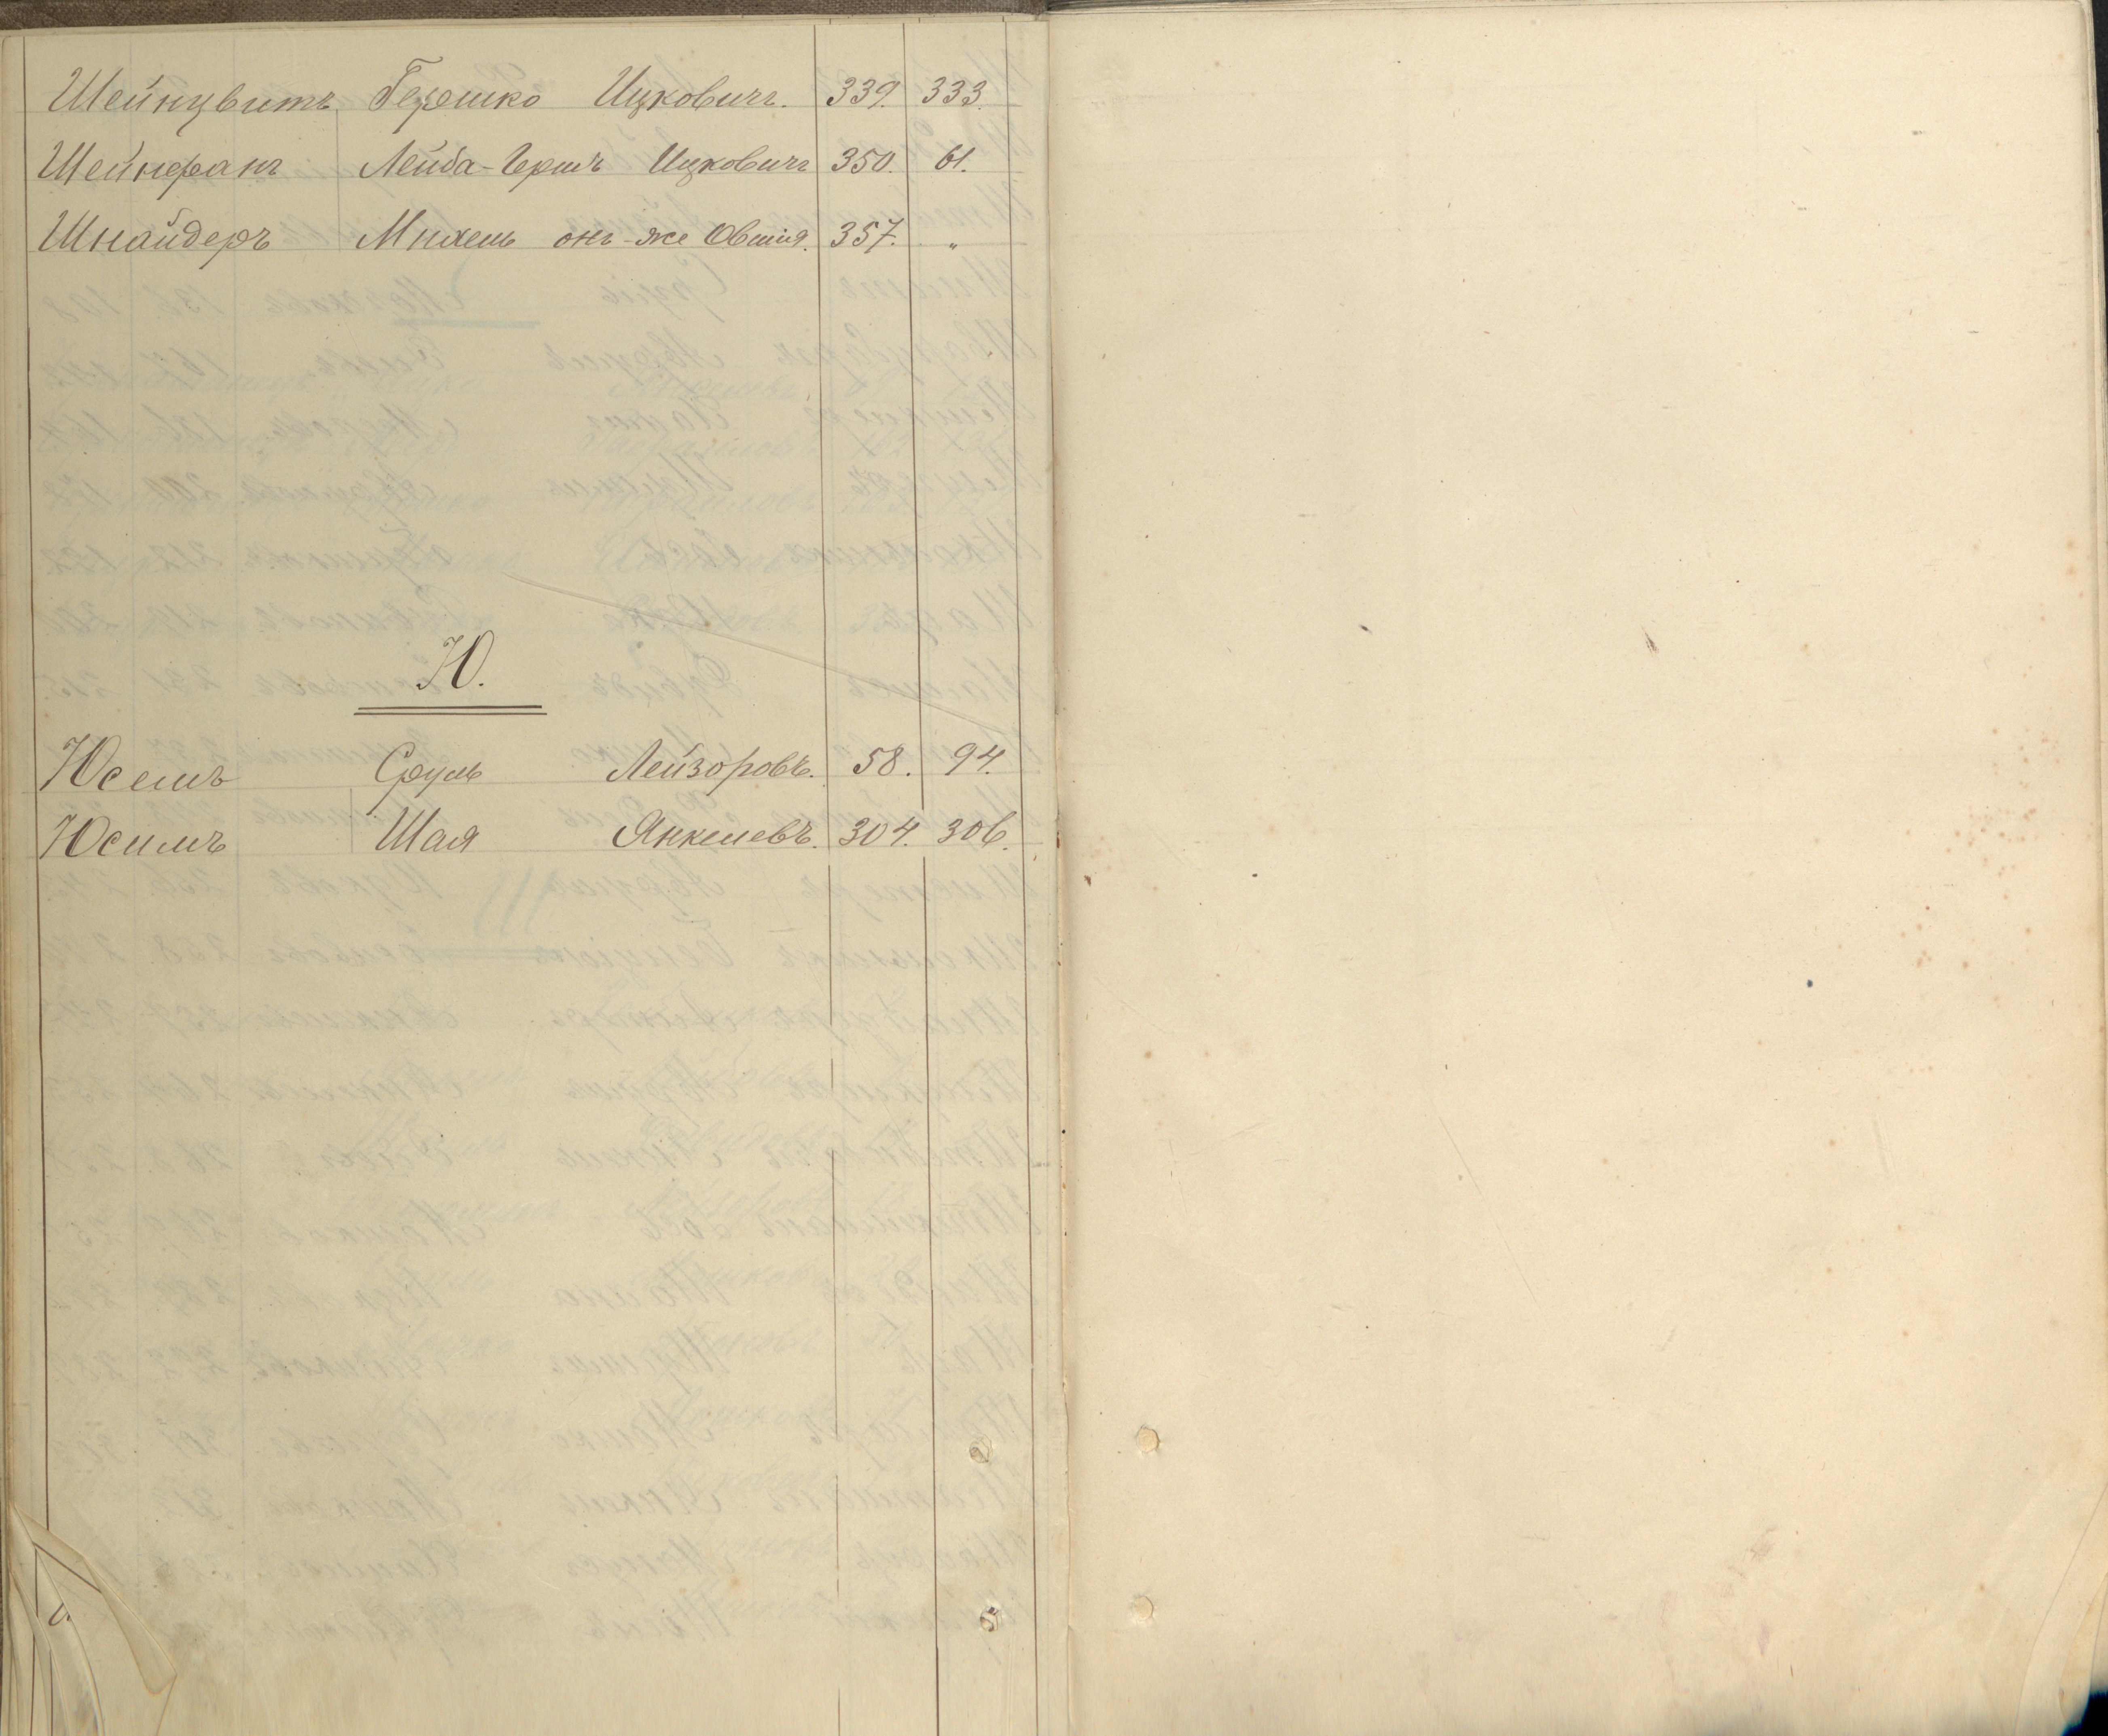 Шейнцвитъ Гершко Ицковичъ. 339. 333.
Шейнфанъ Лейба-Гершъ Ицковичъ 350. 61.
Шнайдеръ Михель онъ-же Овшія. 357. "
Ю.
Юсемъ Сруль Лейзоровъ. 58. 94.
Юсимъ Шая Янкелевъ. 304. 306.